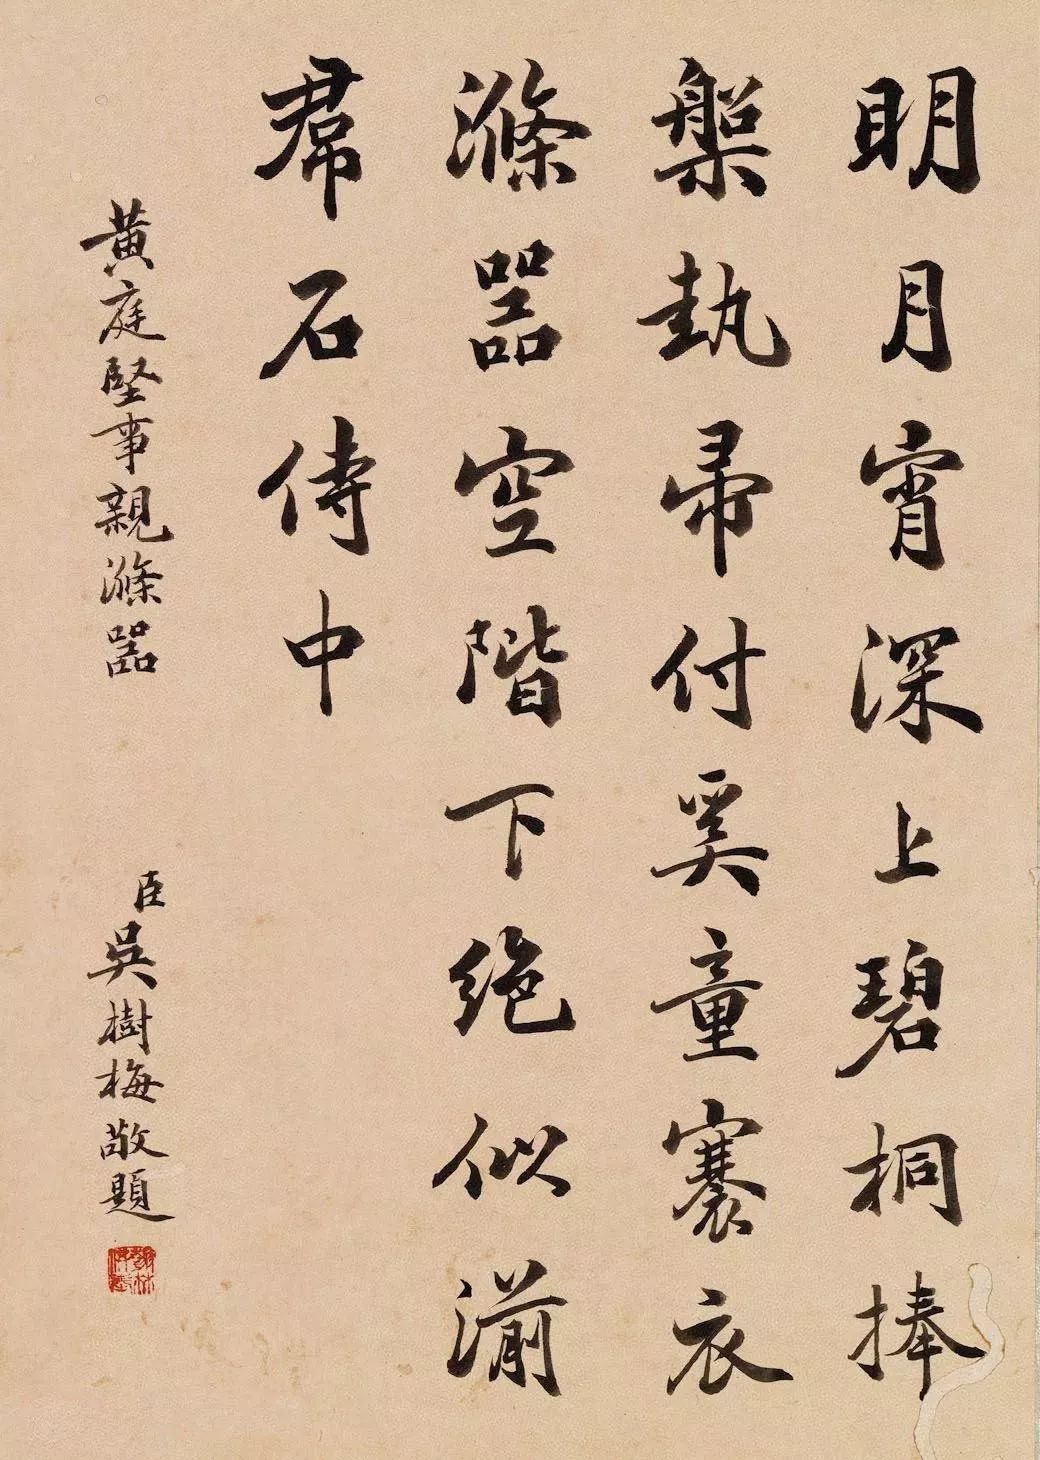 明月宵深上碧桐捧
槃執帚付奚童褰衣
滌噐空階下絶似湔
帬石侍中
黄庭堅事親滌噐
臣吳樹梅敬題